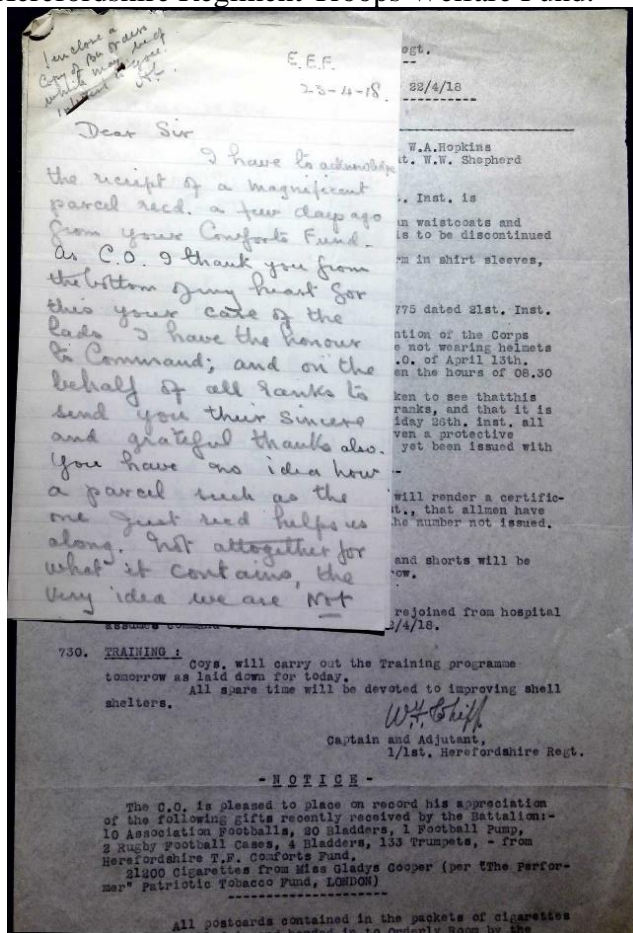 Herefordshire Regiment Troops Welfare Fund.
I enclose a
Copy of Bn Orders
which may be of
interest to you.
E.E.F.
23-4-18.
Dear Sir
I have to acknowledge
the receipt of a magnificent
parcel recd. a few days ago
from your Comforts Fund.
As C.O. I thank you from
the bottom of my heart for
this your care of the
lads I have the honour
to Command; and on the
behalf of all ranks to
send you their sincere
and grateful thanks also.
You have no idea how
a parcel such as the
one just recd helps us
along. Not altogether for
what it contains, the
very idea we are Not
ogt.
22/4/18
W.A.Hopkins
t. W.W. Shepherd
. Inst. is
n waistcoats and
is to be discontinued
rm in shirt sleeves,
775 dated 21st. Inst.
ntion of the Corps
e not wearing helmets
.O. of April 13th.
en the hours of 08.30
ken to see thatthis
ranks, and that it is
iday 26th. inst. all
ven a protective
yet been issued with
will render a certific-
t., that allmen have
he number not issued.
and shorts will be
ow.
rejoined from hospital
assumes command
2/4/18.
730. TRAINING :
Coys. will carry out the Training programme
tomorrow as laid down for today.
All spare time will be devoted to improving shell
shelters.
Captain and Adjutant,
1/1st. Herefordshire Regt.
- N O T I C E -
The C.O. is pleased to place on record his appreciation
of the following gifts recently received by the Battalion:-
10 Association Footballs, 20 Bladders, 1 Football Pump,
2 Rugby Football Cases, 4 Bladders, 133 Trumpets, - from
Herefordshire T.F. Comforts Fund.
21200 Cigarettes from Miss Gladys Cooper (per "The Perfor-
mer" Patriotic Tobacco Fund, LONDON)
All postcards contained in the packets of cigarettes
handed in to Orderly Room by the